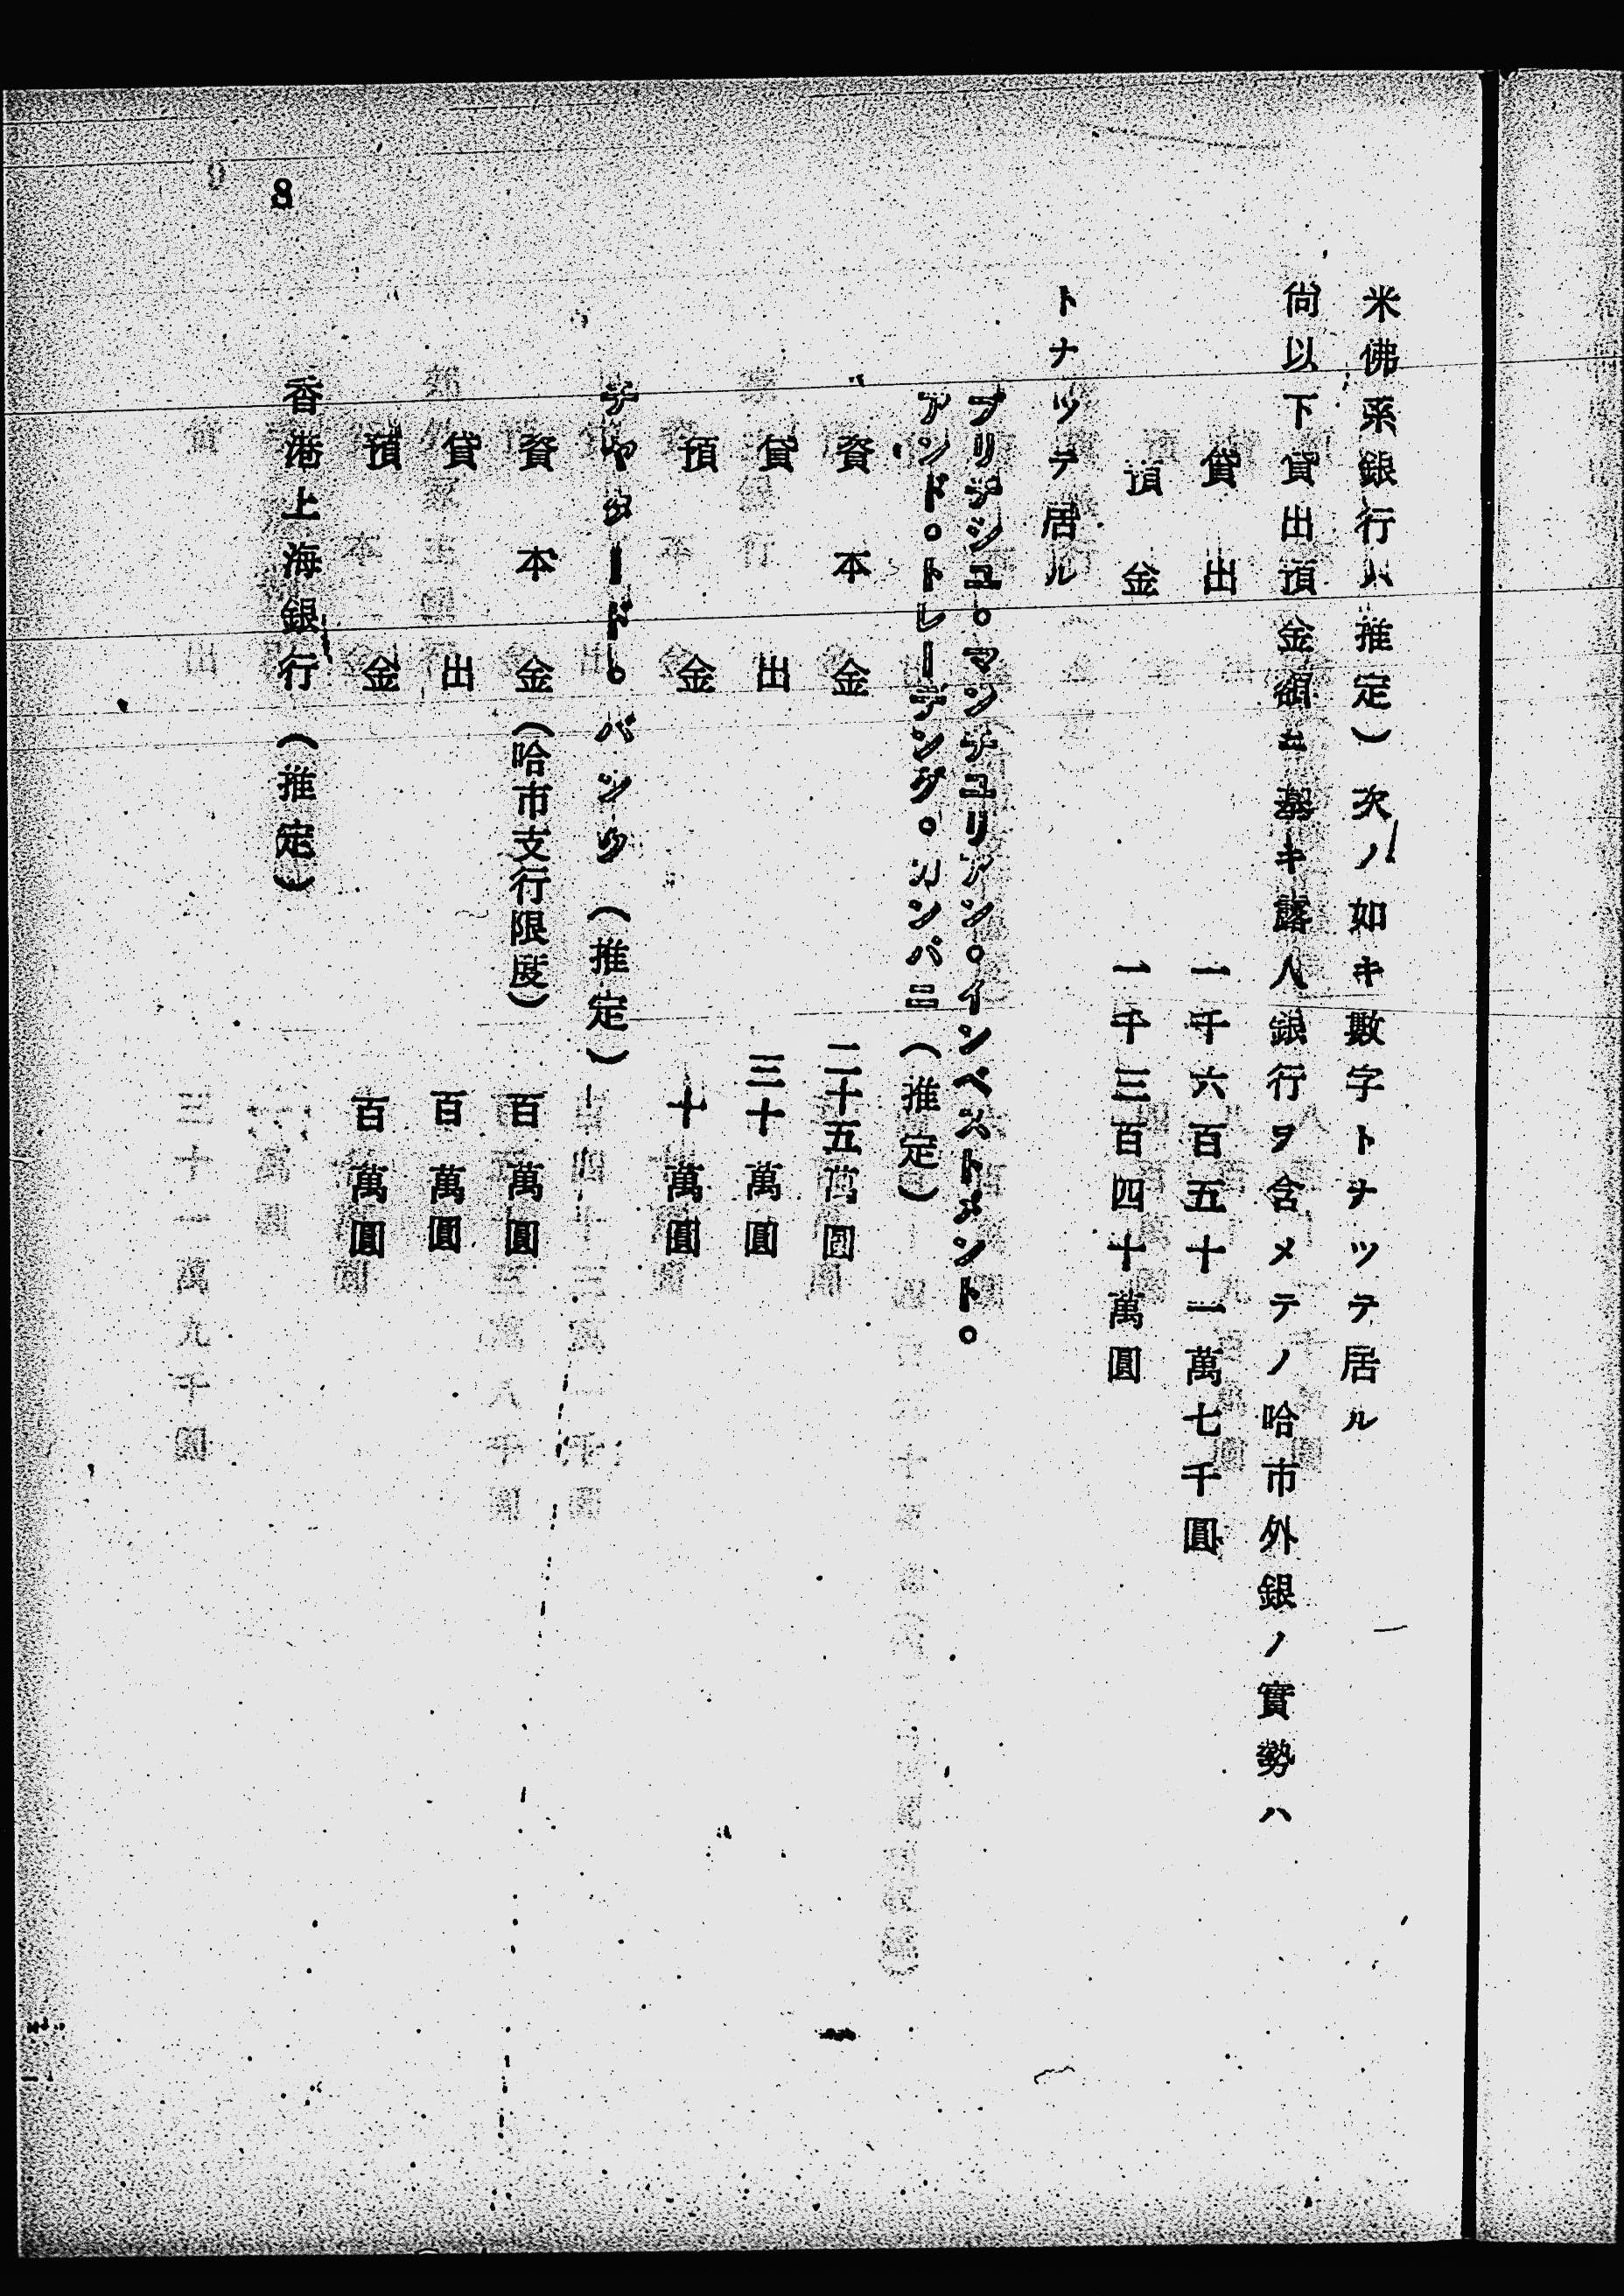 米佛系銀行ハ推定）次ノ如キ數字トナツテ居ル
尙以下貸出預金額ニ基キ露人銀行ヲ含メテノ哈市外銀ノ實勢ハ
貸出　一千六百五十一萬七千圓
預金　一千三百四十萬圓
トナツテ居ル
ブリテシユ。マンチユリアン。インベストメント。
アンド。トレーデング。カンパニ（推定）
資本金　二十五萬圓
貸出　三十萬圓
預金　十萬圓
チヤタード。バンク（推定）
資本金（哈市支行限度）　百萬圓
貸出　百萬圓
預金　百萬圓
香港上海銀行（推定）
8